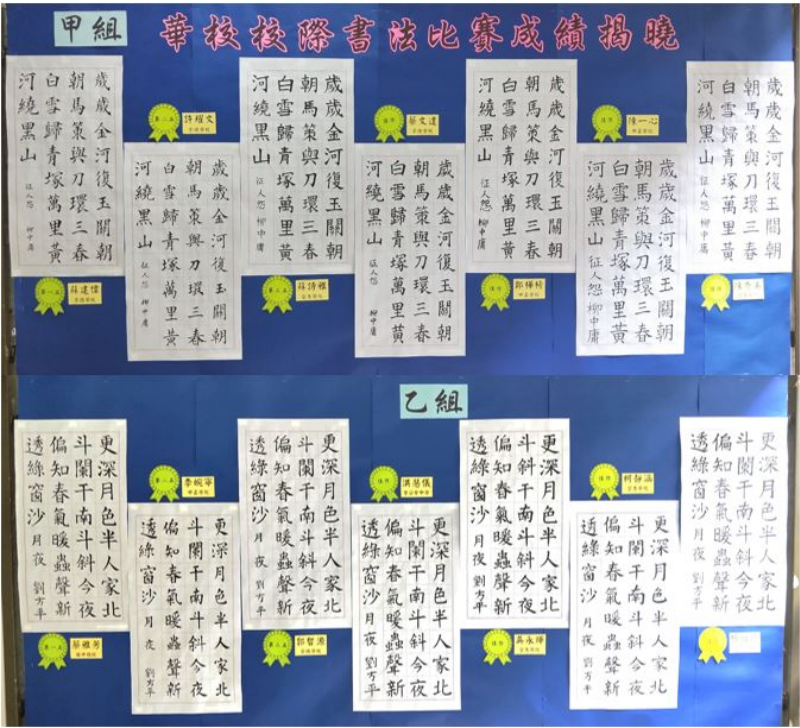 甲組
華校校際書法比賽成績揭曉
歲歲金河復玉關朝
朝馬策與刀環三春
白雪歸青塚萬里黃
河繞黑山 征人怨 柳中庸
第一名
第二名
許耀文
歲歲金河復玉關朝
朝馬策與刀環三春
白雪歸青塚萬里黃
河繞黑山 征人怨 柳中庸
歲歲金河復玉關朝
朝馬策與刀環三春
白雪歸青塚萬里黃
河繞黑山 征人怨 柳中庸
第三名
佳作
蔡文達
歲歲金河復玉關朝
朝馬策與刀環三春
白雪歸青塚萬里黃
河繞黑山 征人怨 柳中庸
歲歲金河復玉關朝
朝馬策與刀環三春
白雪歸青塚萬里黃
河繞黑山 征人怨 柳中庸
佳作
佳作
陳一心
歲歲金河復玉關朝
朝馬策與刀環三春
白雪歸青塚萬里黃
河繞黑山 征人怨 柳中庸
歲歲金河復玉關朝
朝馬策與刀環三春
白雪歸青塚萬里黃
河繞黑山 征人怨 柳中庸
佳作
乙組
更深月色半人家北
斗闌干南斗斜今夜
偏知春氣暖蟲聲新
透綠窗沙 月夜 劉方平
第一名
蔡雅芳
第二名
李婉寧
更深月色半人家北
斗闌干南斗斜今夜
偏知春氣暖蟲聲新
透綠窗沙 月夜 劉方平
更深月色半人家北
斗闌干南斗斜今夜
偏知春氣暖蟲聲新
透綠窗沙 月夜 劉方平
第三名
佳作
洪慧儀
更深月色半人家北
斗闌干南斗斜今夜
偏知春氣暖蟲聲新
透綠窗沙 月夜 劉方平
更深月色半人家北
斗闌干南斗斜今夜
偏知春氣暖蟲聲新
透綠窗沙 月夜 劉方平
佳作
吳永輝
佳作
柯靜涵
更深月色半人家北
斗闌干南斗斜今夜
偏知春氣暖蟲聲新
透綠窗沙 月夜 劉方平
更深月色半人家北
斗闌干南斗斜今夜
偏知春氣暖蟲聲新
透綠窗沙 月夜 劉方平